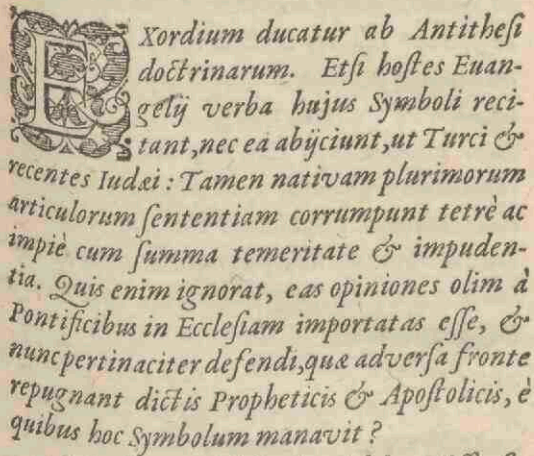 EXordium ducatur ab Antitheſi
doctrinarum. Etſi hoſtes Euan-
gelij verba hujus Symboli reci-
tant, nec ea abijciunt, ut Turci &
recentes Iudæi : Tamen nativam plurimorum
articulorum ſententiam corrumpunt tetrè ac
impiè cum ſumma temeritate & impuden-
tia. Quis enim ignorat, eas opiniones olim à
Pontificibus in Eccleſiam importatas eſſe, &
nunc pertinaciter defendi, quæ adverſa fronte
repugnant dictis Propheticis & Apoſtolicis, è
quibus hoc Symbolum manavit ?